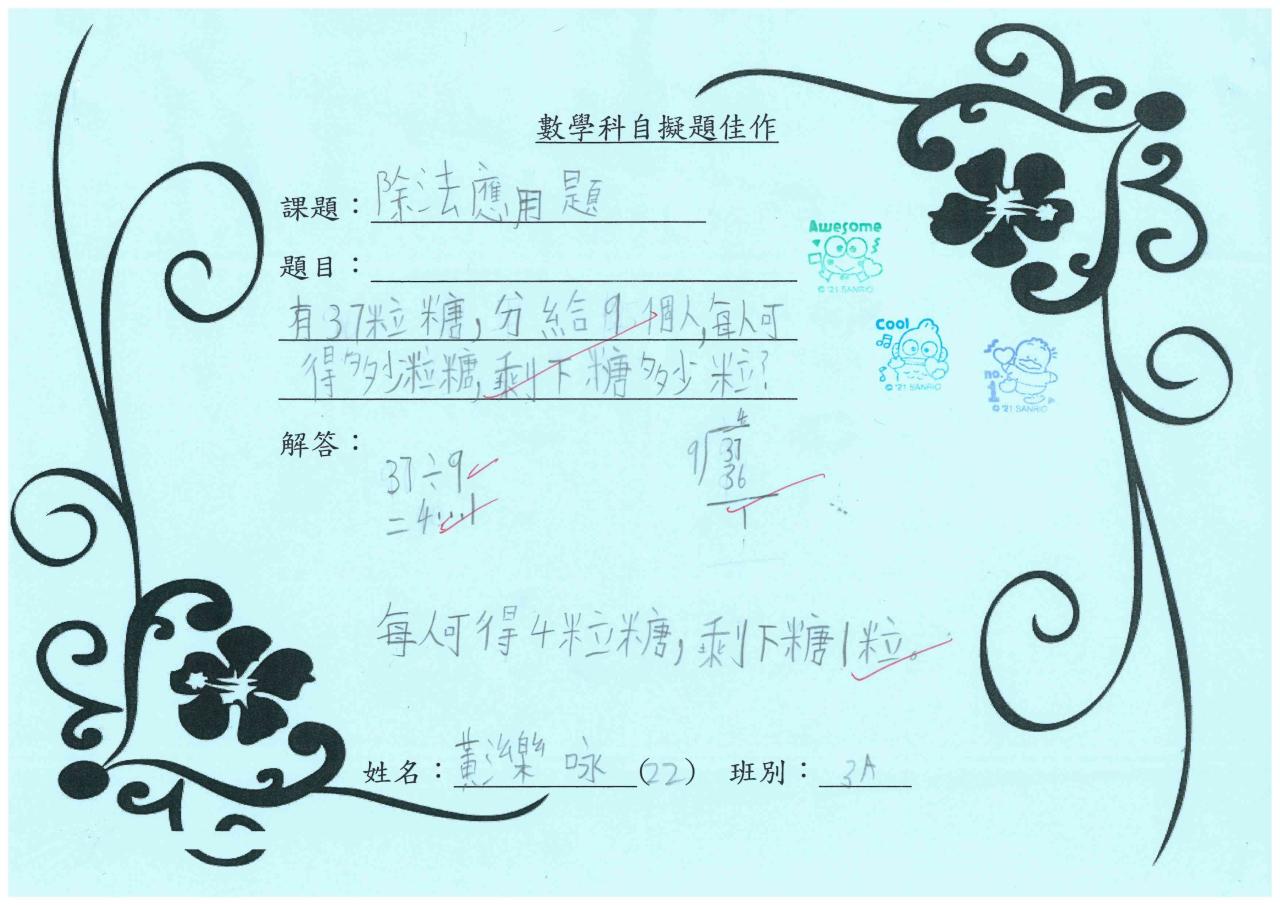 數學科自擬題佳作
課題：除法應用題
題目：
有37粒糖,分給9個人,每人可
得多少粒糖,剩下糖多少粒?
Awesome
© '21 SANRIO
Cool
© '21 SANRIO
no.1
© '21 SANRIO
解答：
37÷9
=4...1
4
9 37
36
1
每人可得4粒糖,剩下糖1粒。
姓名：黃濼咏 (22) 班別：3A